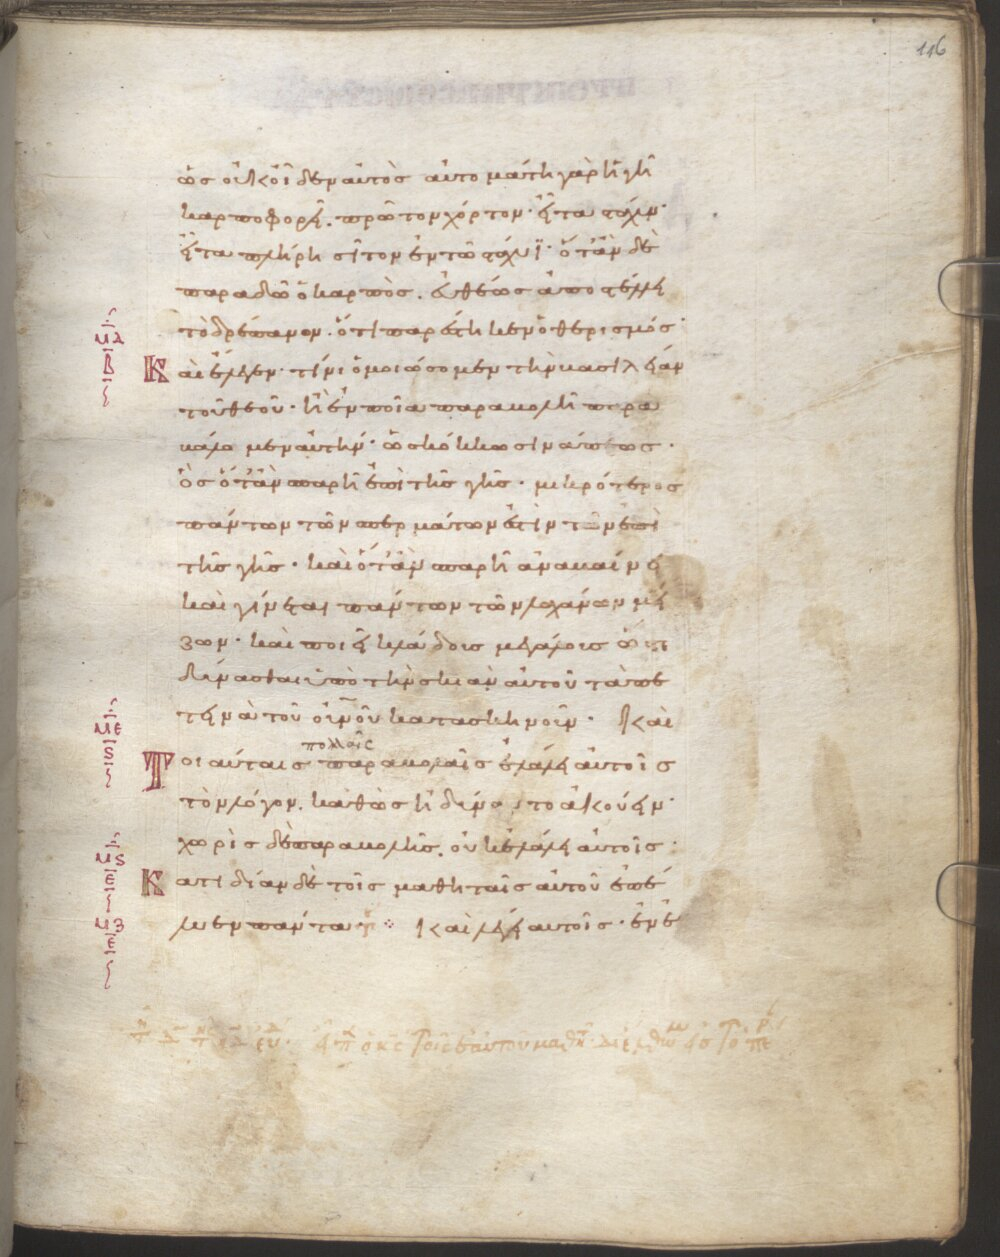 116
ὡς οὐκ οἶδεν αὐτὸς αὐτομάτη γὰρ ἡ γῆ
καρποφορεῖ. πρῶτον χόρτον· εἶτα στάχυν·
εἶτα πλήρη σῖτον ἐν τῶ στάχυϊ· ὅτὰν δὲ
παραδῶ ὁ καρπὸς. εὐθέως ἀποστέλλει
τὸ δρέπανον. ὅτι παρέστηκεν ὁ θερισμός·
Καὶ ἔλεγεν· τίνι ὁμοιώσομεν τὴν βασιλείαν
τοῦ θεοῦ· ἢ ἐν ποία παραβολῆ παρα
βάλωμεν αὐτήν· ὡς κόκκω σινάπεως·
ὃς ὅτὰν σπαρῆ ἐπὶ τῆς γῆς· μικρότερος
πάντων τῶν σπερμάτων ἐστὶν τῶν ἐπὶ
τῆς γῆς· καὶ ὅτὰν σπαρῆ ἀναβαίνει
καὶ γίνεται πάντων τῶν λαχάνων μεί
ζων· καὶ ποιεῖ κλάδους μεγάλους ὥστε
δύνασθαι ὑπὸ τὴν σκιὰν αὐτοῦ τὰ πε
τεινὰ τοῦ οὐνοῦ κατασκηνοῦν· Καὶ
πολλαῖς
Τοιαύταις παραβολαῖς ἐλάλει αὐτοῖς
τὸν λόγον. καθὼς ἠδύναντο ἀκούειν·
χωρὶς δὲ παραβολῆς. οὐκ ἐλάλει αὐτοῖς·
Κατιδίαν δὲ τοῖς μαθηταῖς αὐτοῦ ἐπέ
λυεν πάντα· Καὶ λέγει αὐτοῖς· ἐν ἐ
μδ
β
με
ς
μς
ε
μζ
ε